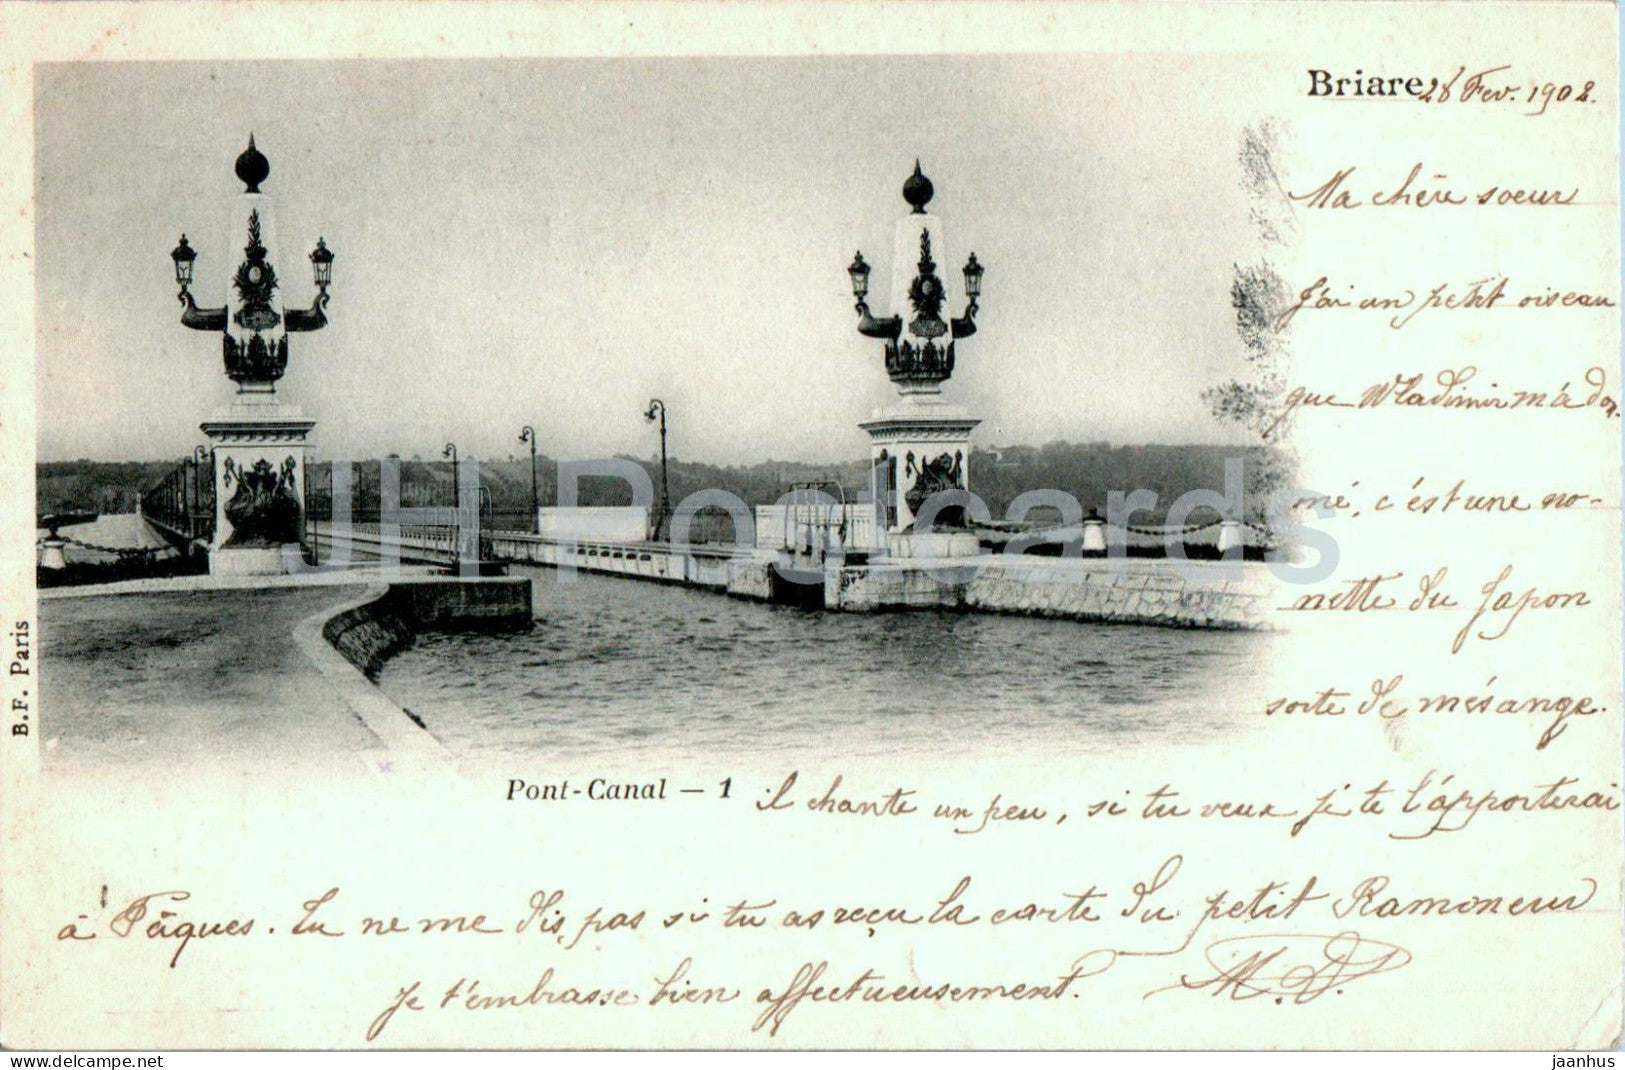 Briare 28 Fev. 1902.
Ma chère soeur
J'ai un petit oiseau
que Wladimir m'a don-
né, c'est une no-
nette du Japon
sorte de mésange.
Pont-Canal — 1 il chante un peu, si tu veux je te l'apporterai
à Pâques. Tu ne me dis pas si tu as reçu la carte du petit Ramoneur
je t'embrasse bien affectueusement. M.D.
B.F. Paris
JH Postcards
www.delcampe.net
jaanhus